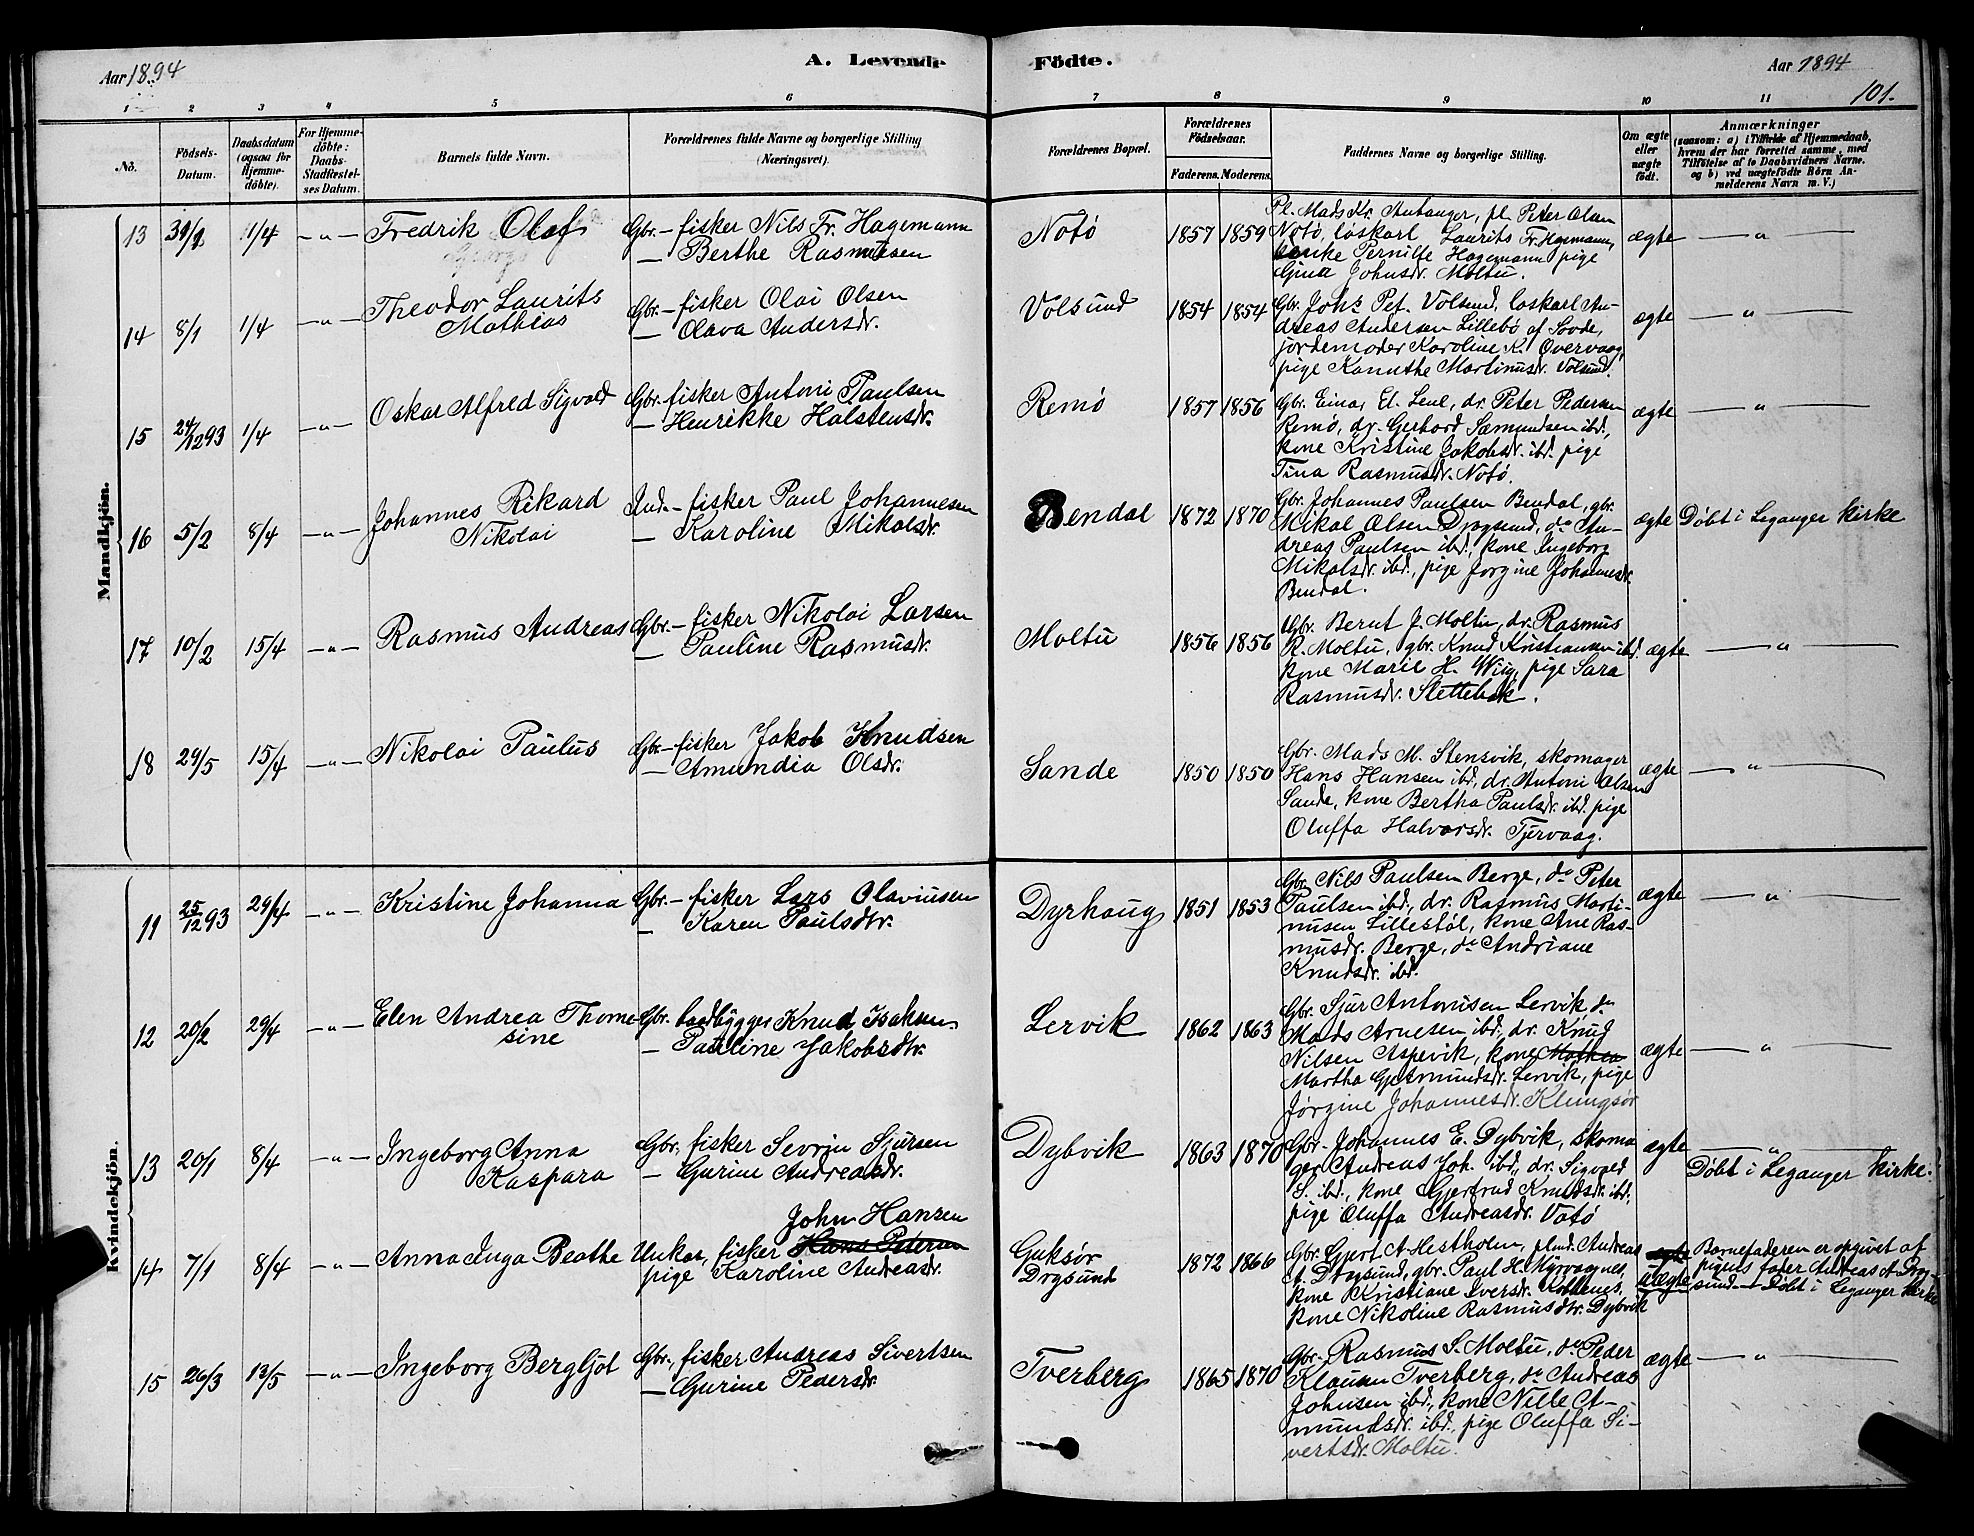 Aar 1894
A. Levende
Födte.
Aar 1894
101.
1 2 3 4 5 6 7 8 9 10 11
No.
Födsels-Datum.
Daabsdatum (ogsaa for Hjemmedöbte).
For Hjemmedöbte: Daabs-Stadfæstelses Datum.
Barnets fulde Navn.
Forældrenes fulde Navne og borgerlige Stilling (Næringsvei).
Forældrenes Bopæl.
Forældrenes Födselsaar.
Faderens. Moderens.
Faddernes Navne og borgerlige Stilling.
Om ægte eller uægte födt.
Anmærkninger
(saasom: a) i Tilfælde af Hjemmedaab,
hvem der har forrettet samme, med
Tilföielse af to Daabsvidners Navne.
og b) ved uægtefödte Börn An-
melderens Navn m. V.)
Mandkjön.
13 1/4 -"- Fredrik Olaf
Georg
Gbr.- fisker Nils Fr. Hagemann
— Berthe Rasmusen
Notö 1857 1859
Pl. Mads Kr. pl. Peter Olsen
Notö, løskarl Laurits Fr. Hagemann,
enke Pernille Hagemann pige
Gina Johnsdr. Moltu.
ægte — " —
14 8/1 1/4 -"- Theodor Laurits
Mathias
Gbr.- fisker Olai Olsen
— Olava Andersdr.
Volsund 1854 1854
Gbr. Johs Pet. Volsund, løskarl An-
dreas Andersen Lillebö af Sövde,
jordemoder Karoline K. Overvaag,
pige Kanuthe Martinusdr. Volsund.
ægte — " —
15 24/12 93 1/4 -"- Oskar Alfred Sigvald
Gbr.- fisker Antoni Paulsen
— Henrikke Halstensdr.
Remö 1857 1856
Gbr. Einar El. dr. Peter Pedersen
Remö, dr. Gerhard Sæmundsen ibd.,
kone Kristine Jakobsdr. ibd. pige
Tina Rasmusdr. Notö.
ægte — " —
16 5/2 8/4 -"- Johannes Rikard
Nikolai
Ind.- fisker Paul Johannesen
— Karoline Mikalsdr.
Bendal 1872 1870
Gbr. Johannes Paulsen Bendal, gbr.
Mikal Olsen Drygsund, do An-
dreas Paulsen ibd., kone Ingeborg
Mikalsdr. ibd., pige Jørgine Johannesdr.
Bendal.
ægte Döbt i Leganger kirke
17 10/2 15/4 -"- Rasmus Andreas
Gbr.- fisker Nikolai Larsen
— Pauline Rasmusdr.
Moltu 1856 1856
Gbr. Bernt J. Moltu, dr. Rasmus
R. Moltu, gbr. Knud Kristiansen ibd.
kone Marie H. Wiig, pige Sara
Rasmusdr. Slettebak.
ægte — " —
18 29/5 15/4 -"- Nikolai Paulus
Gbr.- fisker Jakob Knudsen
— Amundia Olsdr.
Sande 1850 1850
Gbr. Mads M. Stensvik, skomager
Hans Hansen ibd., dr. Antoni Olsen
Sande, kone Bertha Paulsdr. ibd. pige
Oluffa Halvorsdr. Tjervaag.
ægte — " —
Kvindekjön.
11 25/12 93 29/4 -"- Kristine Johanna
Gbr.- fisker Lars Olaviusen
— Karen Paulsdtr.
Dyrhaug 1851 1853
Gbr. Nils Paulsen Berge, do Peter
Paulsen ibd., dr. Rasmus Marti-
nusen Lillestöl, kone Ane Ras-
musdr. Berge, do Andriane
Knudsdr. ibd.
ægte — " —
12 20/2 29/4 -"- Elen Andrea Thome-
sine
Gbr. baadbygger Knud Isaksen
— Pauline Jakobsdtr.
Lervik 1862 1863
Gbr. Sjur Antonisen Lervik do
Mads Arnesen ibd., dr. Knud
Nilsen Aspevik, kone Mathea
Martha Gjetmundsdr. Lervik, pige
Jørgine Johannesdr. Klungsör
ægte — " —
13 20/1 8/4 -"- Ingeborg Anna
Kaspara
Gbr., fisker Severin Sjursen
— Gurine Andreasdr.
Dybvik 1863 1870
Gbr. Johannes E. Dybvik, skoma
ger Andreas Joh. ibd., dr. Sigvald
S. ibd., kone Gjertrud Knudsdr. ibd.
pige Oluffa Andreasdr. Votö
ægte — " —
Döbt i Leganger kirke.
14 7/1 8/4 -"- Anna Inga Beathe
John Hansen
Unkar, fisker Hans Petersen
pige Karoline Andreasdr.
Guksör
Drgsund
1872 1866
Gbr. Gjert A. Hestholm, Andreas
A. Dragsund, gbr. Paul H. Myrvaagnes,
kone Kristiane Iversdr. Koldenes,
kone Nikoline Rasmusdtr. Dybvik
ægte
uægte
Barnefaderen er opgivet af
pigens fader Andreas A. Drag-
sund — Döbt i Leganger kirke
15 26/3 13/5 -"- Ingeborg Bergljot
Gbr., fisker Andreas Sivertsen
— Gurine Pedersdr.
Tverberg 1865 1870
Gbr. Rasmus S. Moltu, do Peder
Klausen Tverberg, do Andreas
Johnsen ibd., kone Nille A-
mundsdr. ibd., pige Oluffa Si-
vertsdr. Moltu.
ægte — " —